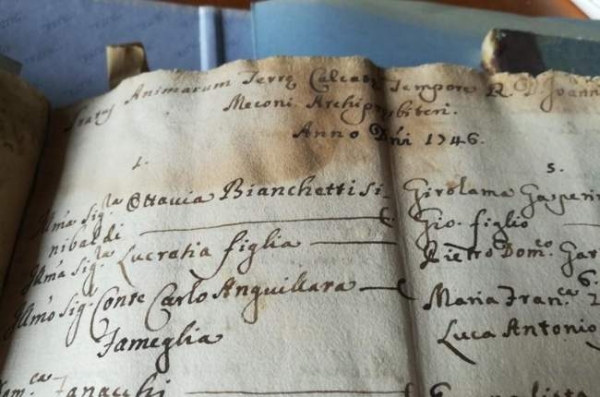 Status Animarum Terrę Calcatę Tempore R. D. Joannis
Meconi Archipresbiteri.
Anno Dñi 1746.
1.
Illmã Sig.ra Ottavia Bianchetti Si-
nibaldi
Illmã Sig.ra Lucratia figlia
Illmõ Sig.r Conte Carlo Anguillara
Fameglia
Zanacchi
5.
Girolama Gasperin
Gio. figlio
Pietro Dom.co Gar
6.
Maria Fran.ca
Luca Antonio